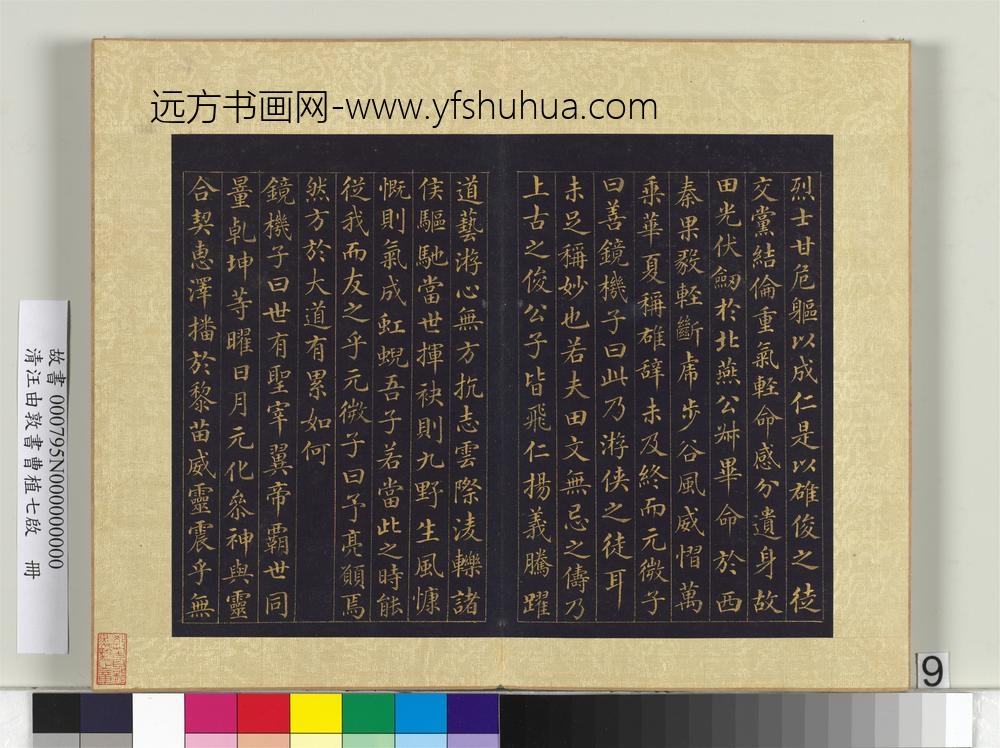 远方书画网-www.yfshuhua.com
烈士甘危軀以成仁是以雄俊之徒
交黨結倫重氣輕命感分遺身故
田光伏劒於北燕公叔畢命於西
秦果毅輕斷虎步谷風威慴萬
乘華夏稱雄辭未及終而元微子
曰善鏡機子曰此乃游俠之徒耳
未足稱妙也若夫田文無忌之儔乃
上古之俊公子皆飛仁揚義騰躍
道藝游心無方抗志雲際淩轢諸
侯驅馳當世揮袂則九野生風慷
慨則氣成虹蜺吾子若當此之時能
從我而友之乎元微子曰予亮願焉
然方於大道有累如何
鏡機子曰世有聖宰翼帝霸世同
量乹坤等曜日月元化叅神與靈
合契惠澤播於黎苗威靈震乎無
故書 000795N000000000
清汪由敦書曹植七啟 冊
9